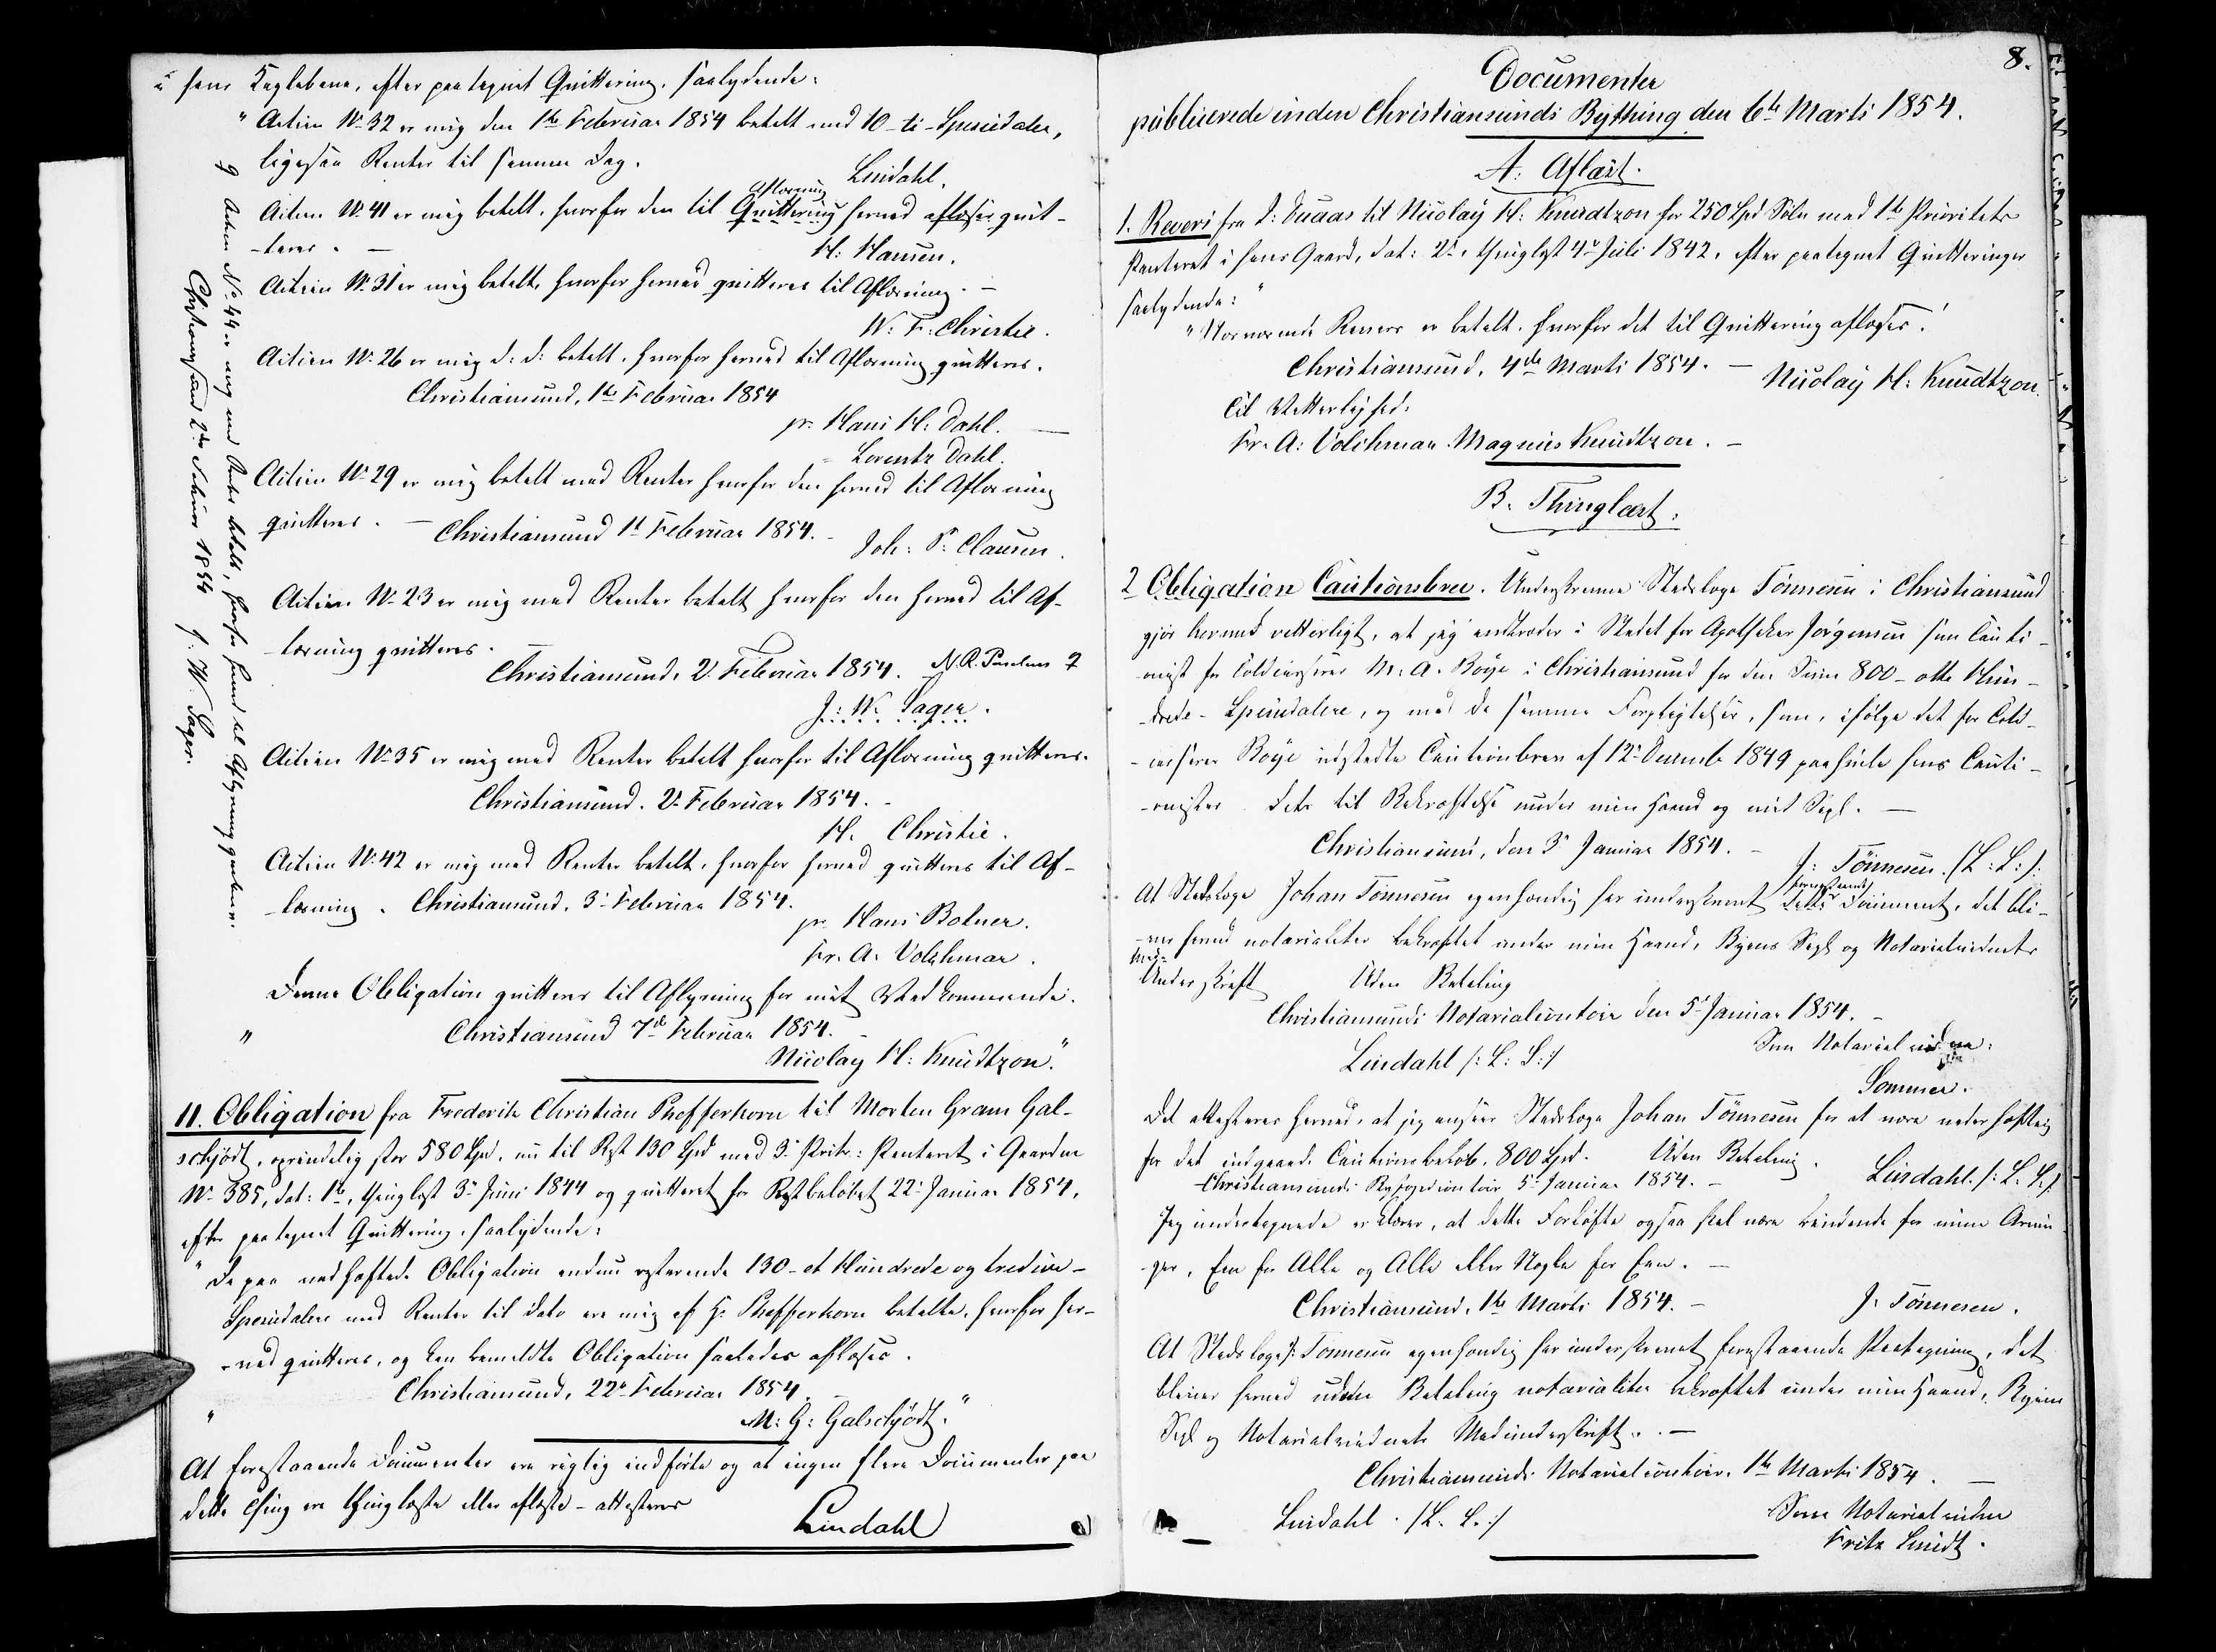 i hans Keglebane, efter paategnet Quittering, saalydende:
"Actien No 32 er mig den 1ste Februar 1854 betalt med 10 - ti - Speciedaler,
ligesaa Renter til samme Dag.
Lindahl.
Actien No 41 er mig betalt, hvorfor den til Aflæsning Quittering herved aflæses quit-
-teres. —
H: Hansen.
Actien No 31 er mig betalt, hvorfor herved quitteres til Aflæsning. —
W: F: Christie.
Actien No 26 er mig d: d: betalt, hvorfor herved til Aflæsning quitteres.
Christiansund, 1ste Februar 1854
pr. Hans H: Dahl. —
Lorentz Dahl.
Actien No 29 er mig betalt med Renter hvorfor den herved til Aflæsning
quitteres. — Christiansund 1st Februar 1854. -
Joh: P: Clausen.
Actien No 23 er mig med Renter betalt hvorfor den herved til Af-
-læsning quitteres. —
Christiansund, 2. Februar 1854. N. R. Paulsen
J: W. Sager.
Actien No 35 er mig med Renter betalt hvorfor til Aflæsning quitteres.
Christiansund. 2. Februar 1854. -
H. Christie.
Actien No 42 er mig med Renter betalt, hvorfor herved quitteres til Af-
-læsning. Christiansund, 3. Februar 1854.
pr. Hans Botner.
Fr. A. Volckmar.
Denne Obligation quitteres til Aflysning for mit Vedkommende.
" Christiansund 7de Februar 1854. -
Nicolay H: Knudtzon."
9 Actien No 44 er mig med Renter betalt, hvorfor herved til Aflysning quitteres.
Christiansund 2den Februar 1854 J: W. Sager.
11. Obligation fra Frederik Christian Phefferkorn til Morten Gram Gal-
schjödt, oprindelig stor 580 Spd, nu til Rest 130 Spd med 3. Prit: Panteret i Gaarden
No 385, dat: 1ste, thinglæst 3. Juni 1844 og quitteret for Restbelöbet 22. Januar 1854,
efter paategnet Quittering, saalydende:
"De paa vedhæftede Obligation endnu resterende 130 - et Hundrede og tredive -
Speciedalere med Renter til dato ere mig af Hr Phefferkorn betalte, hvorfor her-
-ved quitteres, og kan bemeldte Obligation saaledes aflæses.
Christiansund, 22. Februar 1854. —
" M: G: Galschjödt."
At forestaaende Documenter ere rigtig indførte og at ingen flere Documenter paa
dette Thing ere thinglæste eller aflæste - attesteres
Lindahl
8.
Documenter
publicerede inden Christiansunds Bything den 6te Marts 1854.
A: Aflæst.
1. Revers fra D: Duaas til Nicolay H: Knudtzon for 250 Spd Sölv med 1ste Prioritets
Panteret i hans Gaard, dat: 2., thinglæst 4. Juli 1842, efter paategnet Quitteringer
saalydende:
"Nærværende Revers er betalt, hvorfor det til Quittering aflæses."
Christiansund, 4de Marts 1854. —
Nicolay H: Knudtzon.
Til Vitterlighed:
Fr. A: Volckmar Magnus Knudtzon. —
B. Thinglæst.
2 Obligation Cautionsbrev. Underskrevne Stadsloge Tönnesen i Christiansund
gjör herved vitterligt, at jeg indtræder i Stedet for Apotheker Jörgensen som Cauti-
-onist for Toldcasserer M: A. Böye i Christiansund for den Sum 800 - otte Hun-
-drede - Speciedalere, og med de samme Forpligtelser, som, ifölge det for Told-
-casserer Böye udstedte Cautionsbrev af 12. Decembr 1849 paahvile hans Cauti-
-onister. Dette til Bekræftelse under min Haand og mit Segl. —
Christiansund, den 3. Januar 1854. —
J: Tönnesen. (L: S:).
At Stadsloge Johan Tönnesen egenhændig har underskrevet forestaaende dette Document, det bli-
-ver herved notarialiter bekræftet under min Haand, Byens Segl og Notarialvidnets
Med-
Underskrift Uden Betaling
Christiansunds Notarialcontoir den 5. Januar 1854. —
Lindahl /: L: S:/
Som Notarialvidne:
Sommer.
Det attesteres herved, at jeg anseer Stadsloge Johan Tönnesen for at være vederhæftig
for det indgaaede Cautionsbelöb, 800 Spd. Uden Betaling.
Christiansunds Byfogedcontoir 5. Januar 1854. — Lindahl. /: L. S./
Jeg undertegnede erklærer, at dette Forløfte ogsaa skal være bindende for mine Arvin-
-ger, Een for Alle og Alle eller Nogle for Een. —
Christiansund, 1ste Marts 1854. — J. Tönnesen.
At Stadsloge J: Tönnesen egenhændig har underskrevet forestaaende Paategning, det
bliver herved uden Betaling notarialiter bekræftet under min Haand, Byens
Segl og Notarialvidnets Medunderskrift. —
Christiansunds Notarialcontoir, 1ste Marts 1854. —
Lindahl. /L. S.:/
Som Notarialvidne
Fritz Smidt.